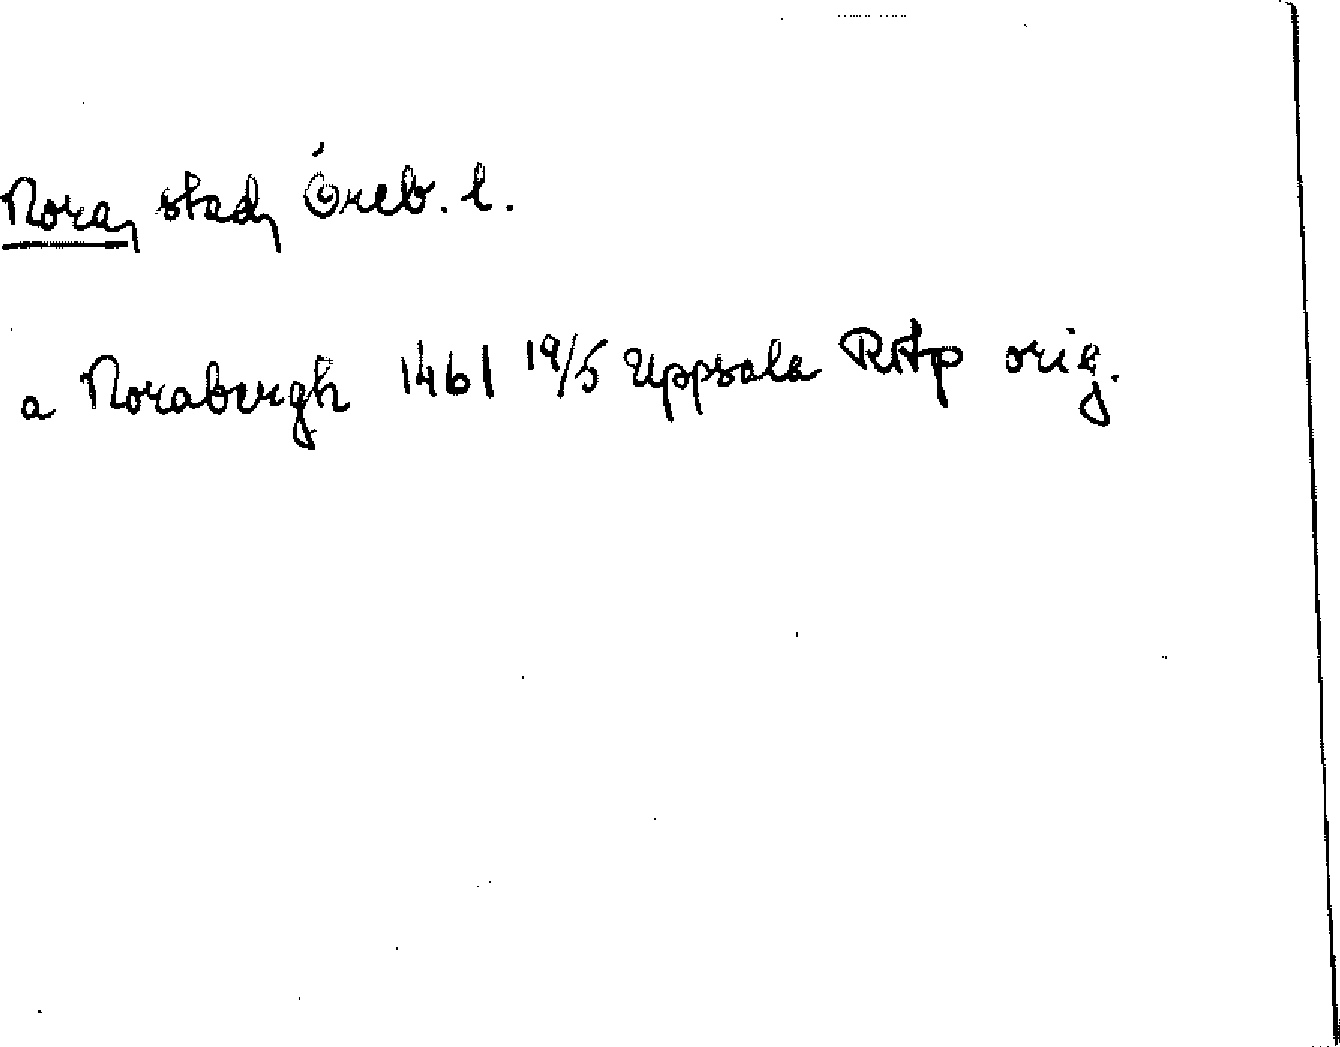 Nora, stad, Öreb. l.
a Norabergh 1461 19/5 Uppsala RAp orig.